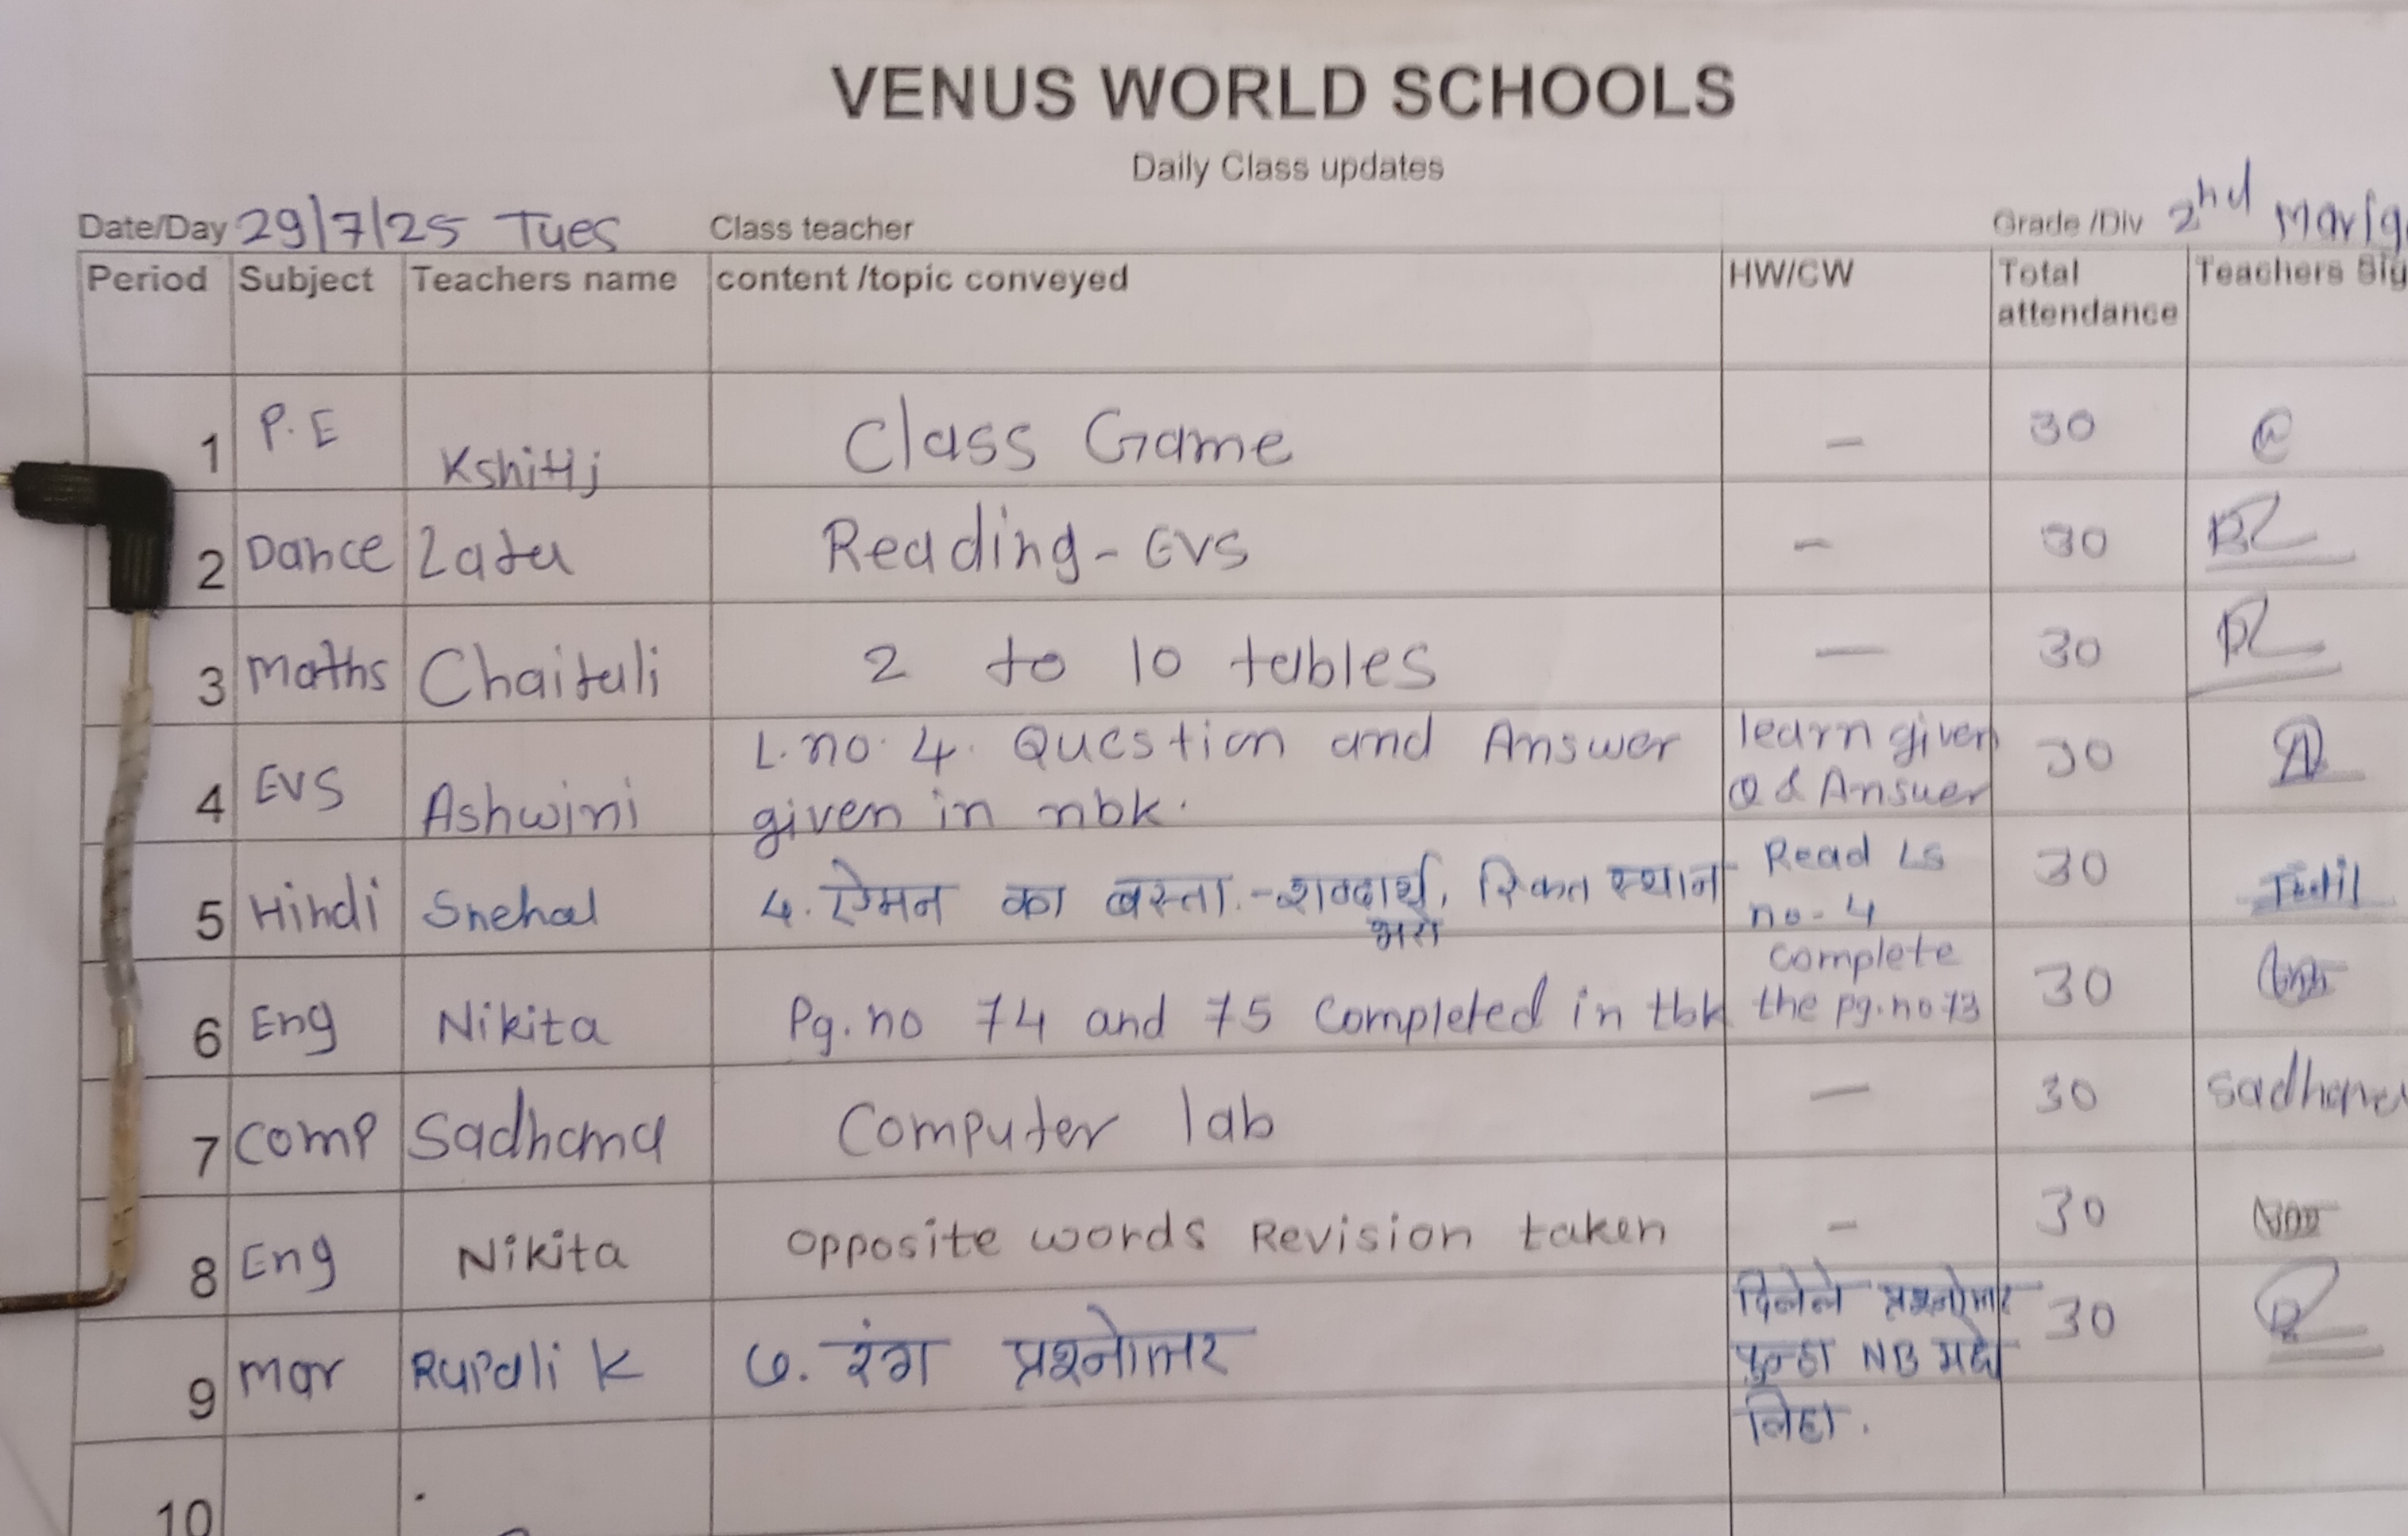 VENUS WORLD SCHOOLS
Daily Class updates
Date/Day 29/7/25 Tues Class teacher Grade /Div 2nd
Period Subject Teachers name content /topic conveyed HW/CW Total attendance Teachers
1 P.E Kshitij Class Game - 30
2 Dance Lata Reading - EVS - 30
3 Maths Chaitali 2 to 10 tables - 30
4 EVS Ashwini L.no.4. Question and Answer learn given 30
given in nbk. Q & Answer
5 Hindi Snehal 4. ऐमन का बस्ता.-शब्दार्थ, रिक्त स्थान Read Ls 30
भरो no-4
6 Eng Nikita Pg.no 74 and 75 completed in tbk complete 30
the pg.no 73
7 Comp Sadhana Computer lab - 30 Sadhana
8 Eng Nikita Opposite words Revision taken - 30
9 Mar Rupali K ७. रंग प्रश्नोत्तर दिलेले प्रश्नोत्तर 30
पुन्हा NB मध्ये
लिहा.
10